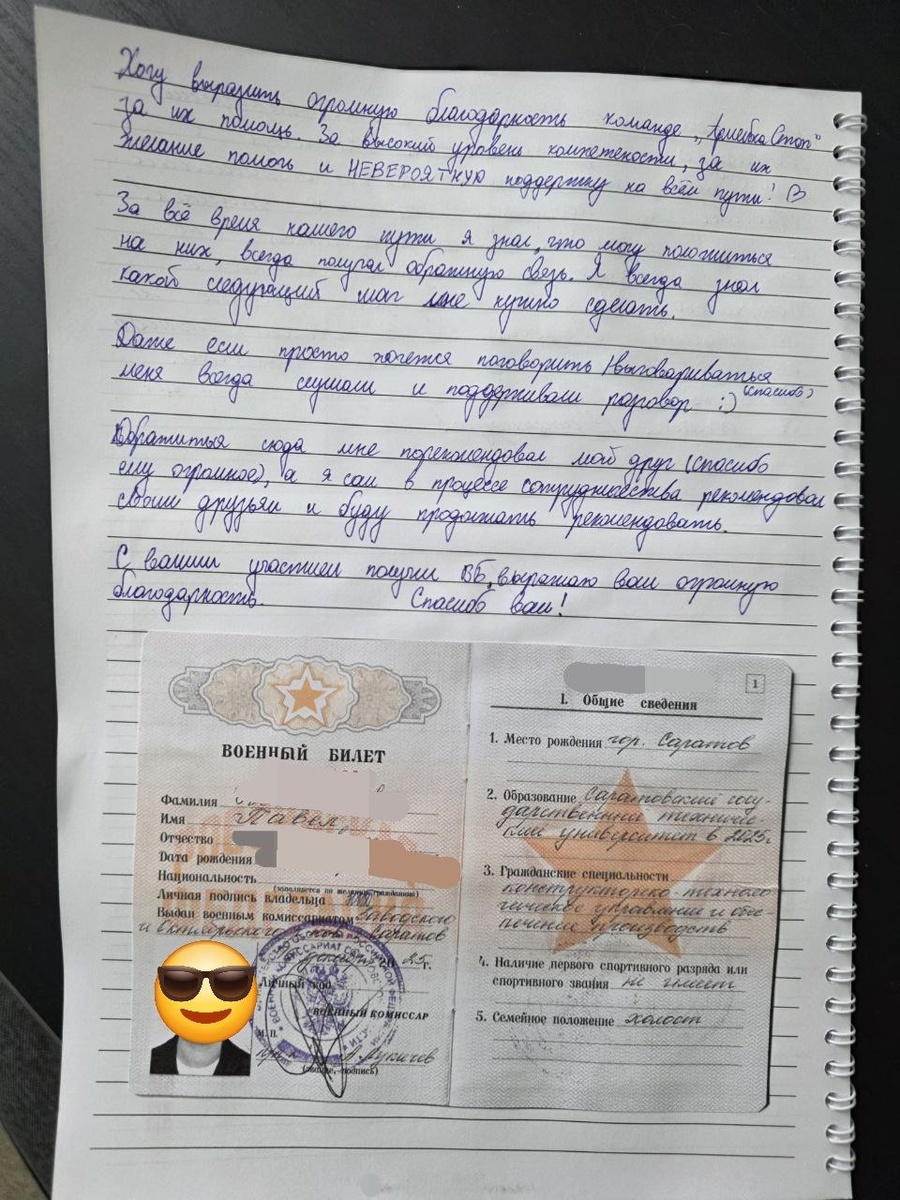 Хочу выразить огромную благодарность команде „Армейка Стоп"
за их помощь. За высокий уровень компетености, за их
желание помочь и НЕВЕРОЯТНУЮ поддержку на всём пути!
За всё время нашего пути я знал, что могу положиться
на них, всегда получал обратную связь. Я всегда знал
какой следующий шаг мне нужно сделать.
Даже если просто хочется поговорить/выговариваться
меня всегда слушали и поддерживали разговор :) (спасибо)
Обратиться сюда мне порекомендовал мой друг (спасибо
ему огромное), а я сам в процессе сотрудничества рекомендовал
своим друзьям и буду продолжать рекомендовать.
С вашим участием получил ВБ, выражаю вам огромную
благодарность. Спасибо вам!
ВОЕННЫЙ БИЛЕТ
Фамилия
Имя Павел
Отчество
Дата рождения
Национальность
(заполняется по желанию гражданина)
Личная подпись владельца
Выдан военным комиссариатом Заводского
и Октябрьского Саратов
25г.
Личный код
ВОЕННЫЙ КОМИССАР
М.П.
(звание, подпись)
1
I. Общие сведения
1. Место рождения гор. Саратов
2. Образование Саратовский госу-
дарственный техничес-
кий университет в 2025г
3. Гражданские специальности
конструкторско-техноло
гическое управлении и обес
печение производств
4. Наличие первого спортивного разряда или
спортивного звания не имеет
5. Семейное положение холост